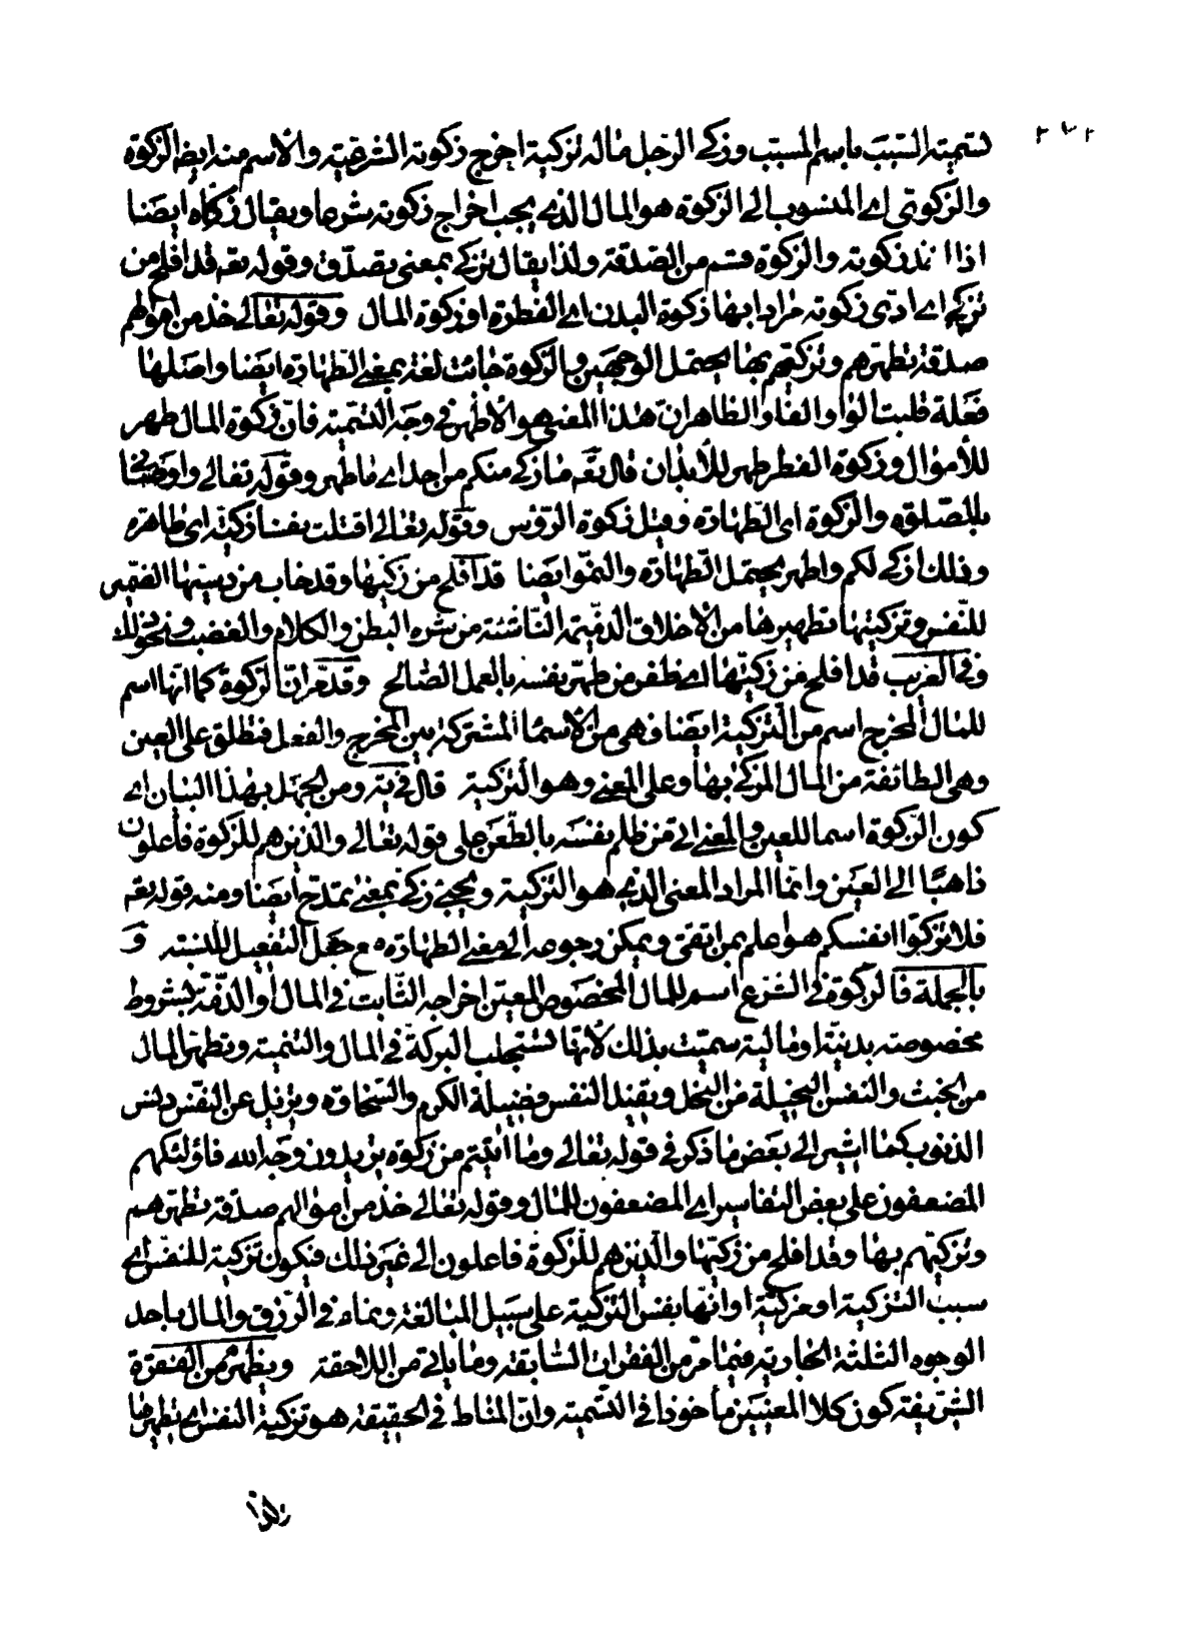 ٢٧٢
تسمية السبب باسم المسبب وزكى الرجل ماله تزكية اخرج زكوته الشرعية والاسم منه ايضا الزكوة
والزكوتى اى المنسوب الى الزكوة هو المال الذى يجب اخراج زكوته شرعا ويقال زكاه ايضا
اذا زكوته والزكوة قسم من الصدقة ولذا يقال تزكى بمعنى تصدق وقوله تعه قد افلح من
تزكى اى ادى زكوته مرادا بها زكوة البدن اى الفطرة او زكوة المال وقوله تعالى خذ من اموالهم
صدقة تطهرهم وتزكيهم بها يحتمل الوجهين والزكوة جائت لغة بمعنى الطهارة ايضا واصلها
فعلة قلبت الواو الفا والظاهر ان هذا المعنى هو الاظهر فى وجه التسمية فان زكوة المال طهر
للأموال وزكوة الفطر طهر للأبدان قال تعه ما زكى منكم من احد اى ما طهر وقوله تعالى واوصانى
بالصلوة والزكوة اى الطهارة وقيل زكوة الرؤس وقوله تعالى اقتلت نفسا زكية اى طاهرة
وذلك ازكى لكم واطهر يحتمل الطهارة والنمو ايضا قد افلح من زكيها وقد خاب من دسيها الضمير
للنفس وتزكيتها تطهيرها من الاخلاق الدنية الناشئة من شره البطن والكلام والغضب ونحو ذلك
وفى الغريب قد افلح من زكيها اى ظفر من طهر نفسه بالعمل الصالح وقد مر ان الزكوة كما انها اسم
للمال المخرج اسم من التزكية ايضا فهى من الاسماء المشتركة بين المخرج والفعل فتطلق على العين
وهى الطائفة من المال المزكى بها وعلى المعنى وهو التزكية قال فى يه ومن الجهل بهذا البيان اى
كون الزكوة اسما للعين والمعنى اتى من ظلم نفسه بالطعن على قوله تعالى والذين هم للزكوة فاعلون
ذاهبا الى العين وانما المراد المعنى الذى هو التزكية ويجئ زكى بمعنى تمدح ايضا ومنه قوله تعه
فلا تزكوا انفسكم هو اعلم بمن اتقى ويمكن رجوعه الى معنى الطهارة مع جعل التفعيل للنسبة و
بالجملة فالزكوة فى الشرع اسم للمال المخصوص المعين اخراجه الثابت فى المال أو الذمة بشروط
مخصوصة بدنية او مالية سميت بذلك لأنها تستجلب البركة فى المال والتنمية وتطهر المال
من الخبث والنفس البخيلة من البخل وتفيد النفس فضيلة الكرم والسخاوة وتزيل عن النفس دنس
الذنوب كما اشير الى بعض ما ذكر فى قوله تعالى وما آتيتم من زكوة تريدون وجه الله فاولئك هم
المضعفون على بعض التفاسير اى المضعفون للمال وقوله تعالى خذ من اموالهم صدقة تطهرهم
وتزكيهم بها وقد افلح من زكيها والذين هم للزكوة فاعلون الى غير ذلك فيكون تزكية للنفس اى
سبب التزكية او مزكية او انها نفس التزكية على سبيل المبالغة ونماء فى الرزق والمال باحد
الوجوه الثلثة الجارية فيما مر من الفقرات السابقة وما يأتى من اللاحقة ويظهر من الفقرة
الشريفة كون كلا المعنيين مأخوذا فى التسمية وان المناط فى الحقيقة هو تزكية النفس اى تطهيرها